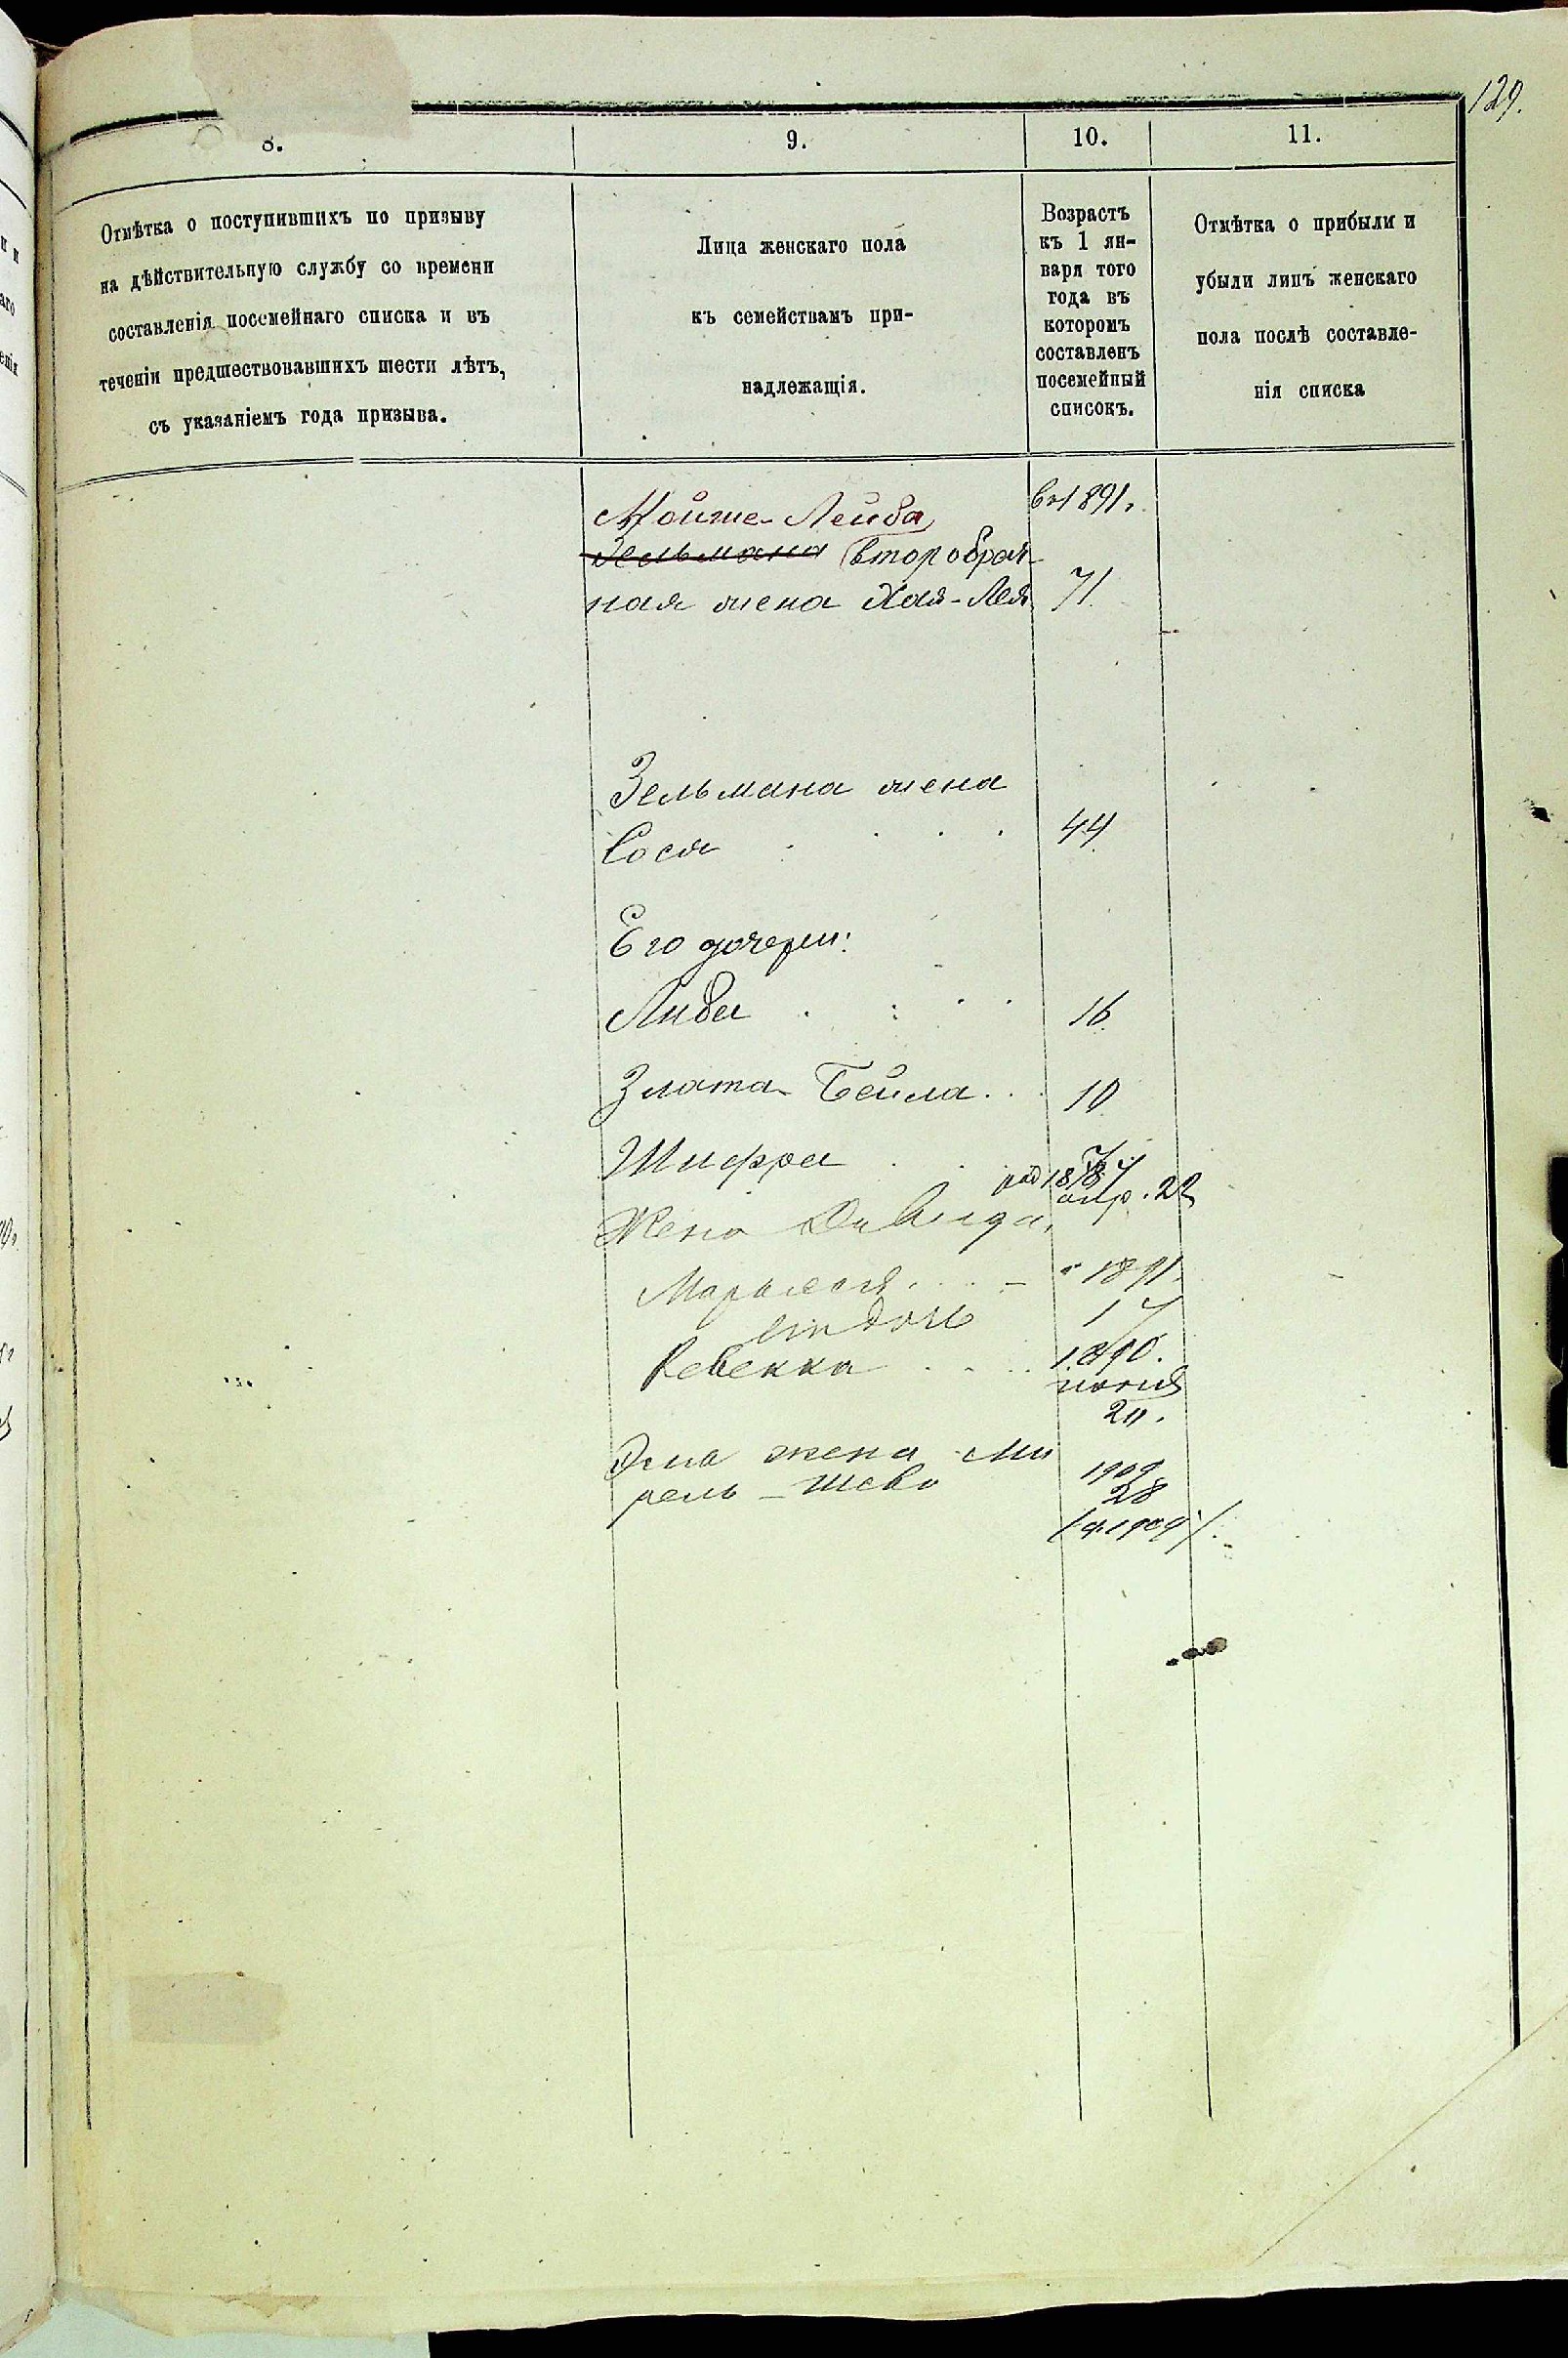 129.
8.
9.
10.
11.
Отмѣтка о поступившихъ по призыву
на дѣйствительную службу со времени
составленія посемейнаго списка и въ
теченіи предшествовавшихъ шести лѣтъ,
съ указаніемъ года призыва.
Лица женскаго пола
къ семействамъ при-
надлежащія.
Возрастъ
къ 1 ян-
варя того
года въ
которомъ
составленъ
посемейный
списокъ.
Отмѣтка о прибыли и
убыли лицъ женскаго
пола послѣ составле-
нія списка
Мойше-Лейба въ 1891г.
Зельмана второбрач-
ная жена Хая-Лея 71.
Зельмана жена
Сося 44.
Его дочери:
Либа 16.
Злата-Бейла 10
Шифра 7.
род 1887
апр. 22
Жена Давида,
Марьяся 1891.
17
дочь
Ревекка 1890.
20.
жена Ми
рель-Шева 1909
28